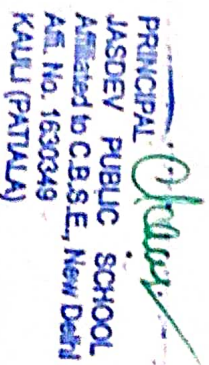 PRINCIPAL
JASDEV PUBLIC SCHOOL
Affiliated to C.B.S.E., New Delhi
Aff. No. 1630349
KAULI (PATIALA)